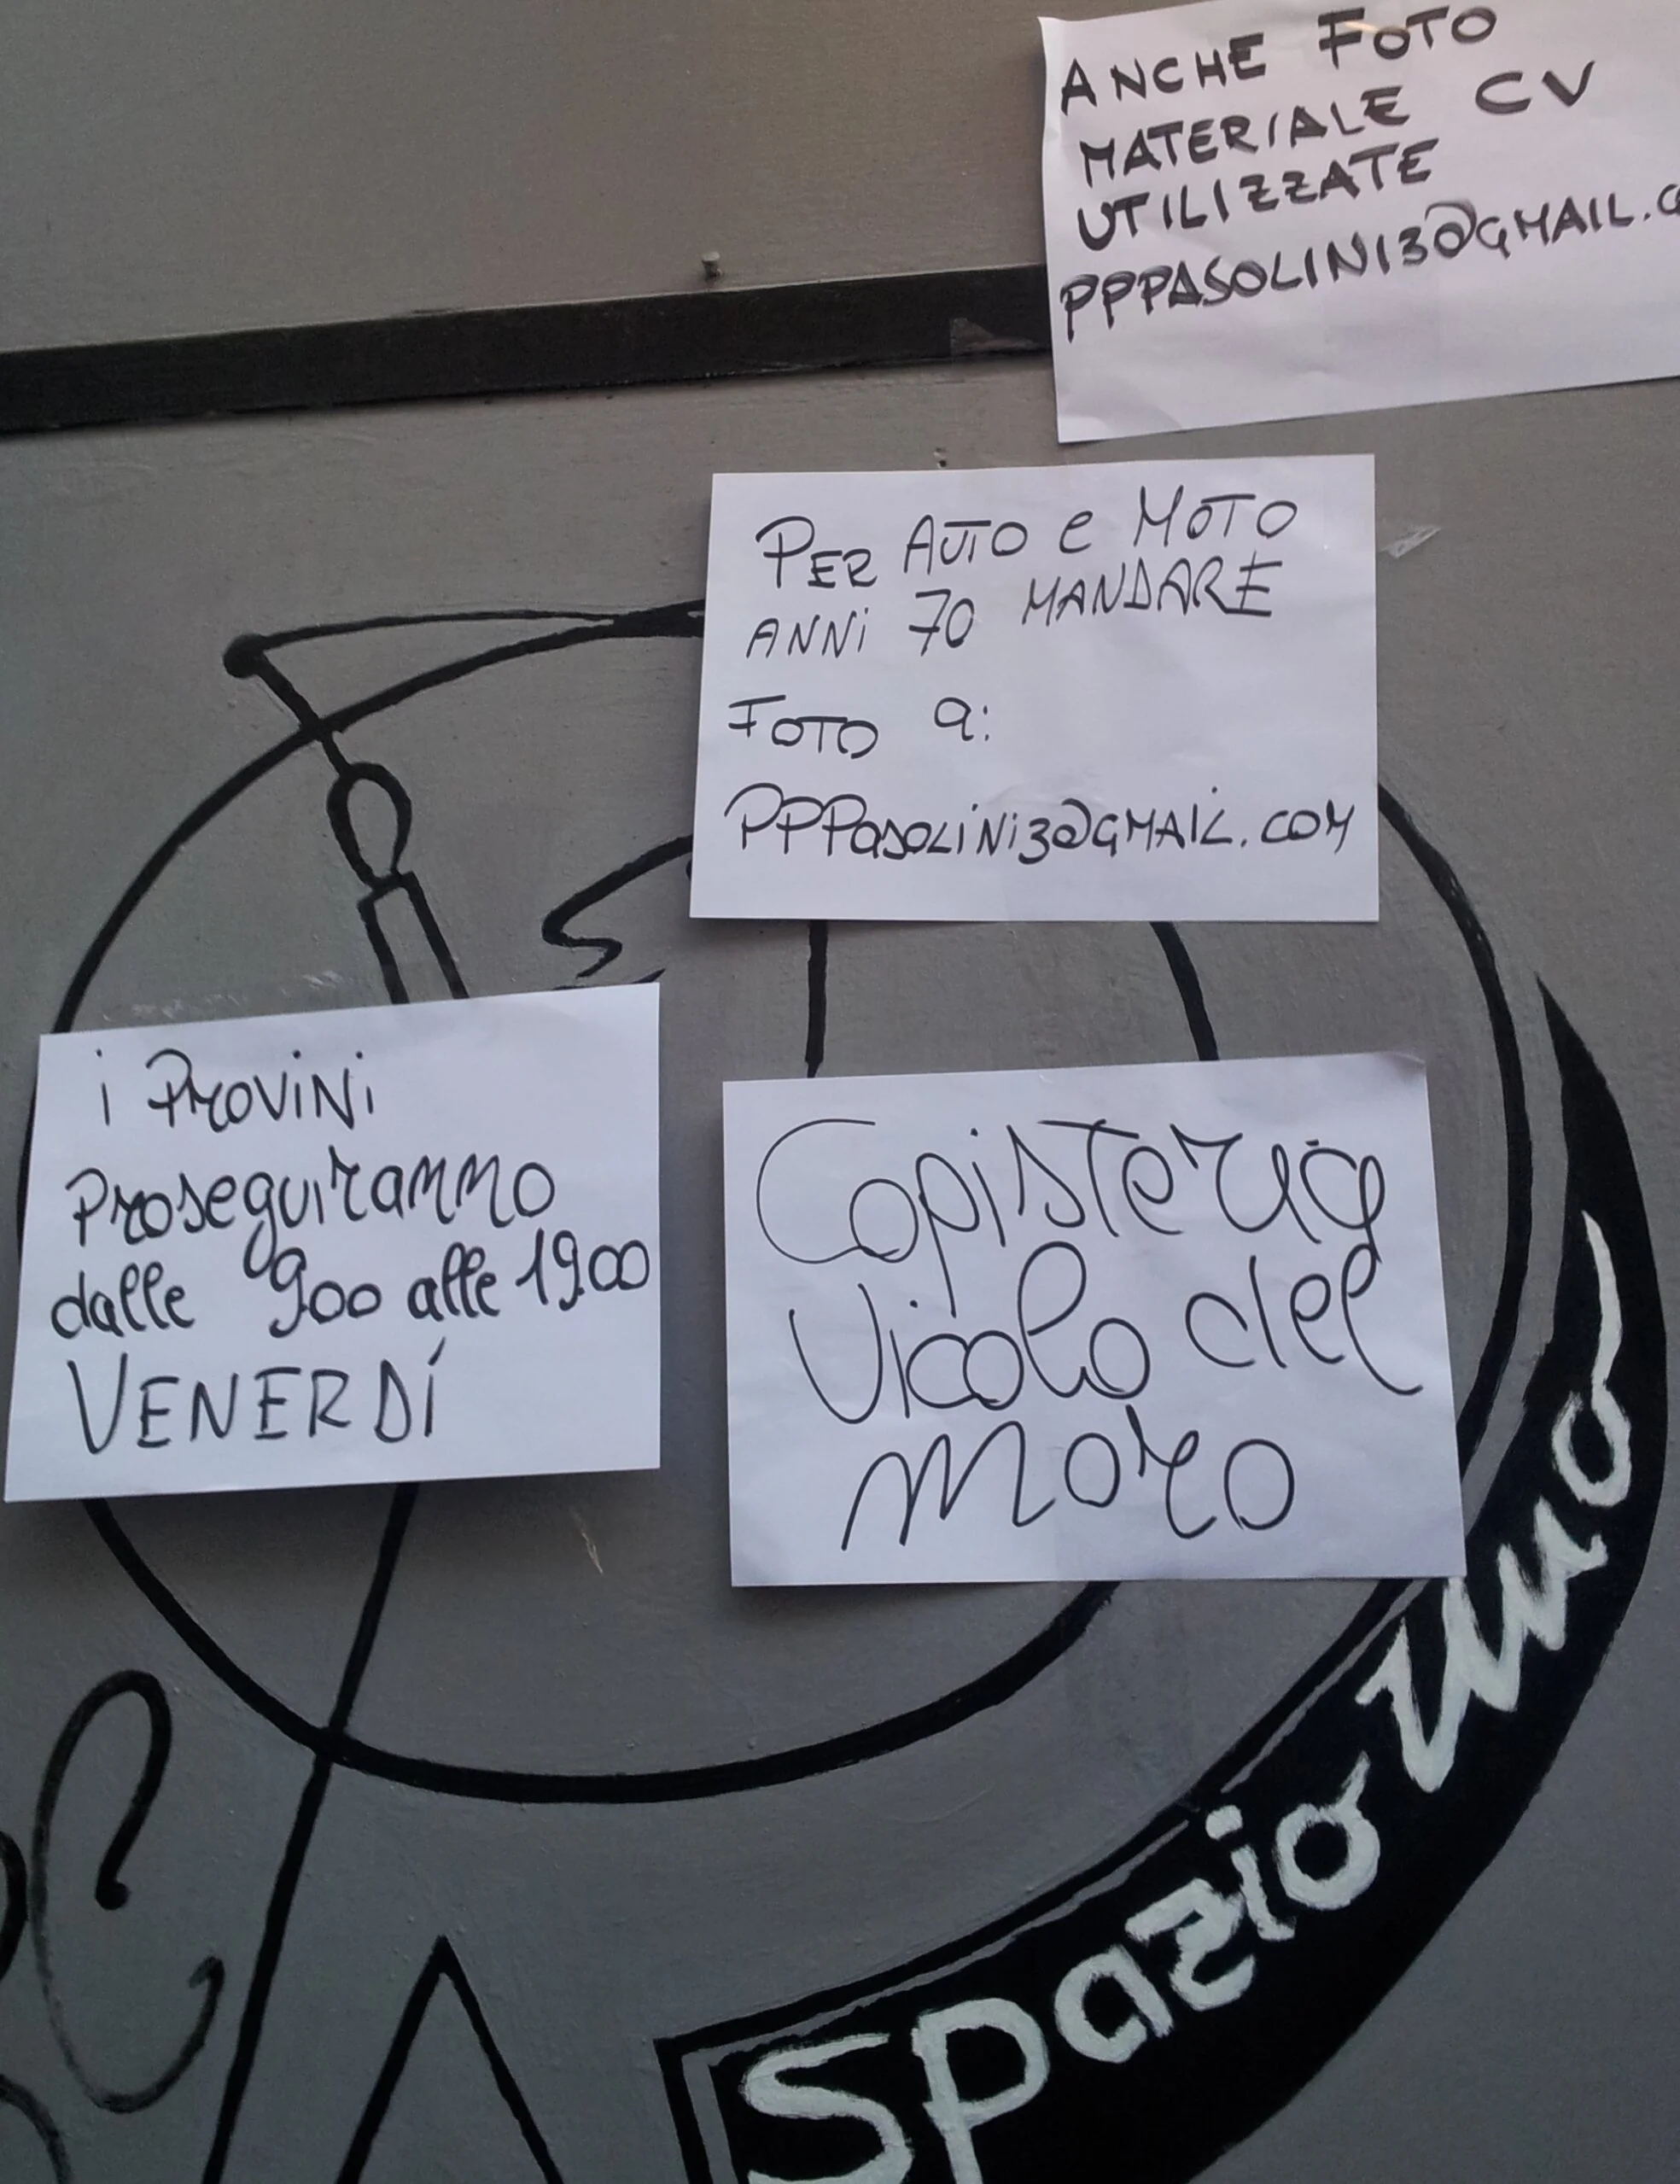 ANCHE FOTO
MATERIALE CV
UTILIZZATE
PPPASOLINI3@GMAIL.C
PER AUTO e MOTO
ANNi 70 MANDARE
FOTO a:
PPPasoLiNi3@GMAiL.COM
i PROViNi
Proseguiranno
dalle 9.00 alle 19.00
VENERDÍ
Copisteria
Vicolo del
Moro
Spazio Uno